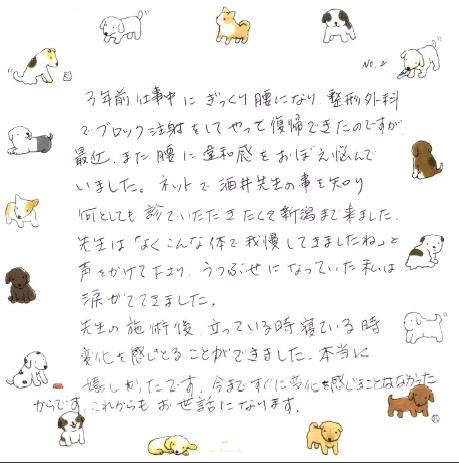 No.2
3年前仕事中にぎっくり腰になり、整形外科
でブロック注射をしてやって復帰できたのですが
最近、また腰に違和感をおぼえ悩んで
いました。ネットで酒井先生の事を知り
何としても診ていただきたくて新潟まで来ました。
先生は「よくこんな体で我慢してきましたね」と
声をかけて下さり、うつぶせになっていた私は
涙がでてきました。
先生の施術後、立っている時寝ている時
変化を感じとることができました。本当に
嬉しかったです。今まですぐに変化を感じることはなかった
からです。これからもお世話になります。